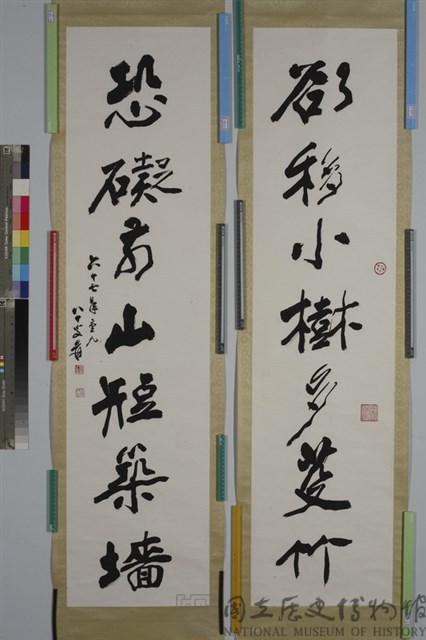 欲移小樹多芟竹
恐礙前山短築墻
六十七年重九
八十叟爰
國立歷史博物館
NATIONAL MUSEUM OF HISTORY